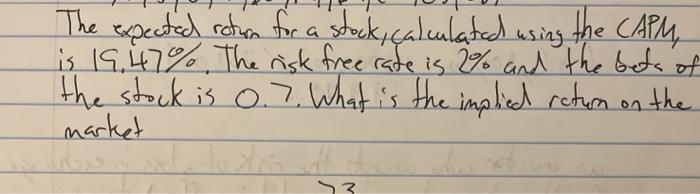 The expected return for a stock, calculated using the CAPM,
is 19.47%. The risk free rate is 2% and the beta of
the stock is 0.7. What is the implied return on the
market